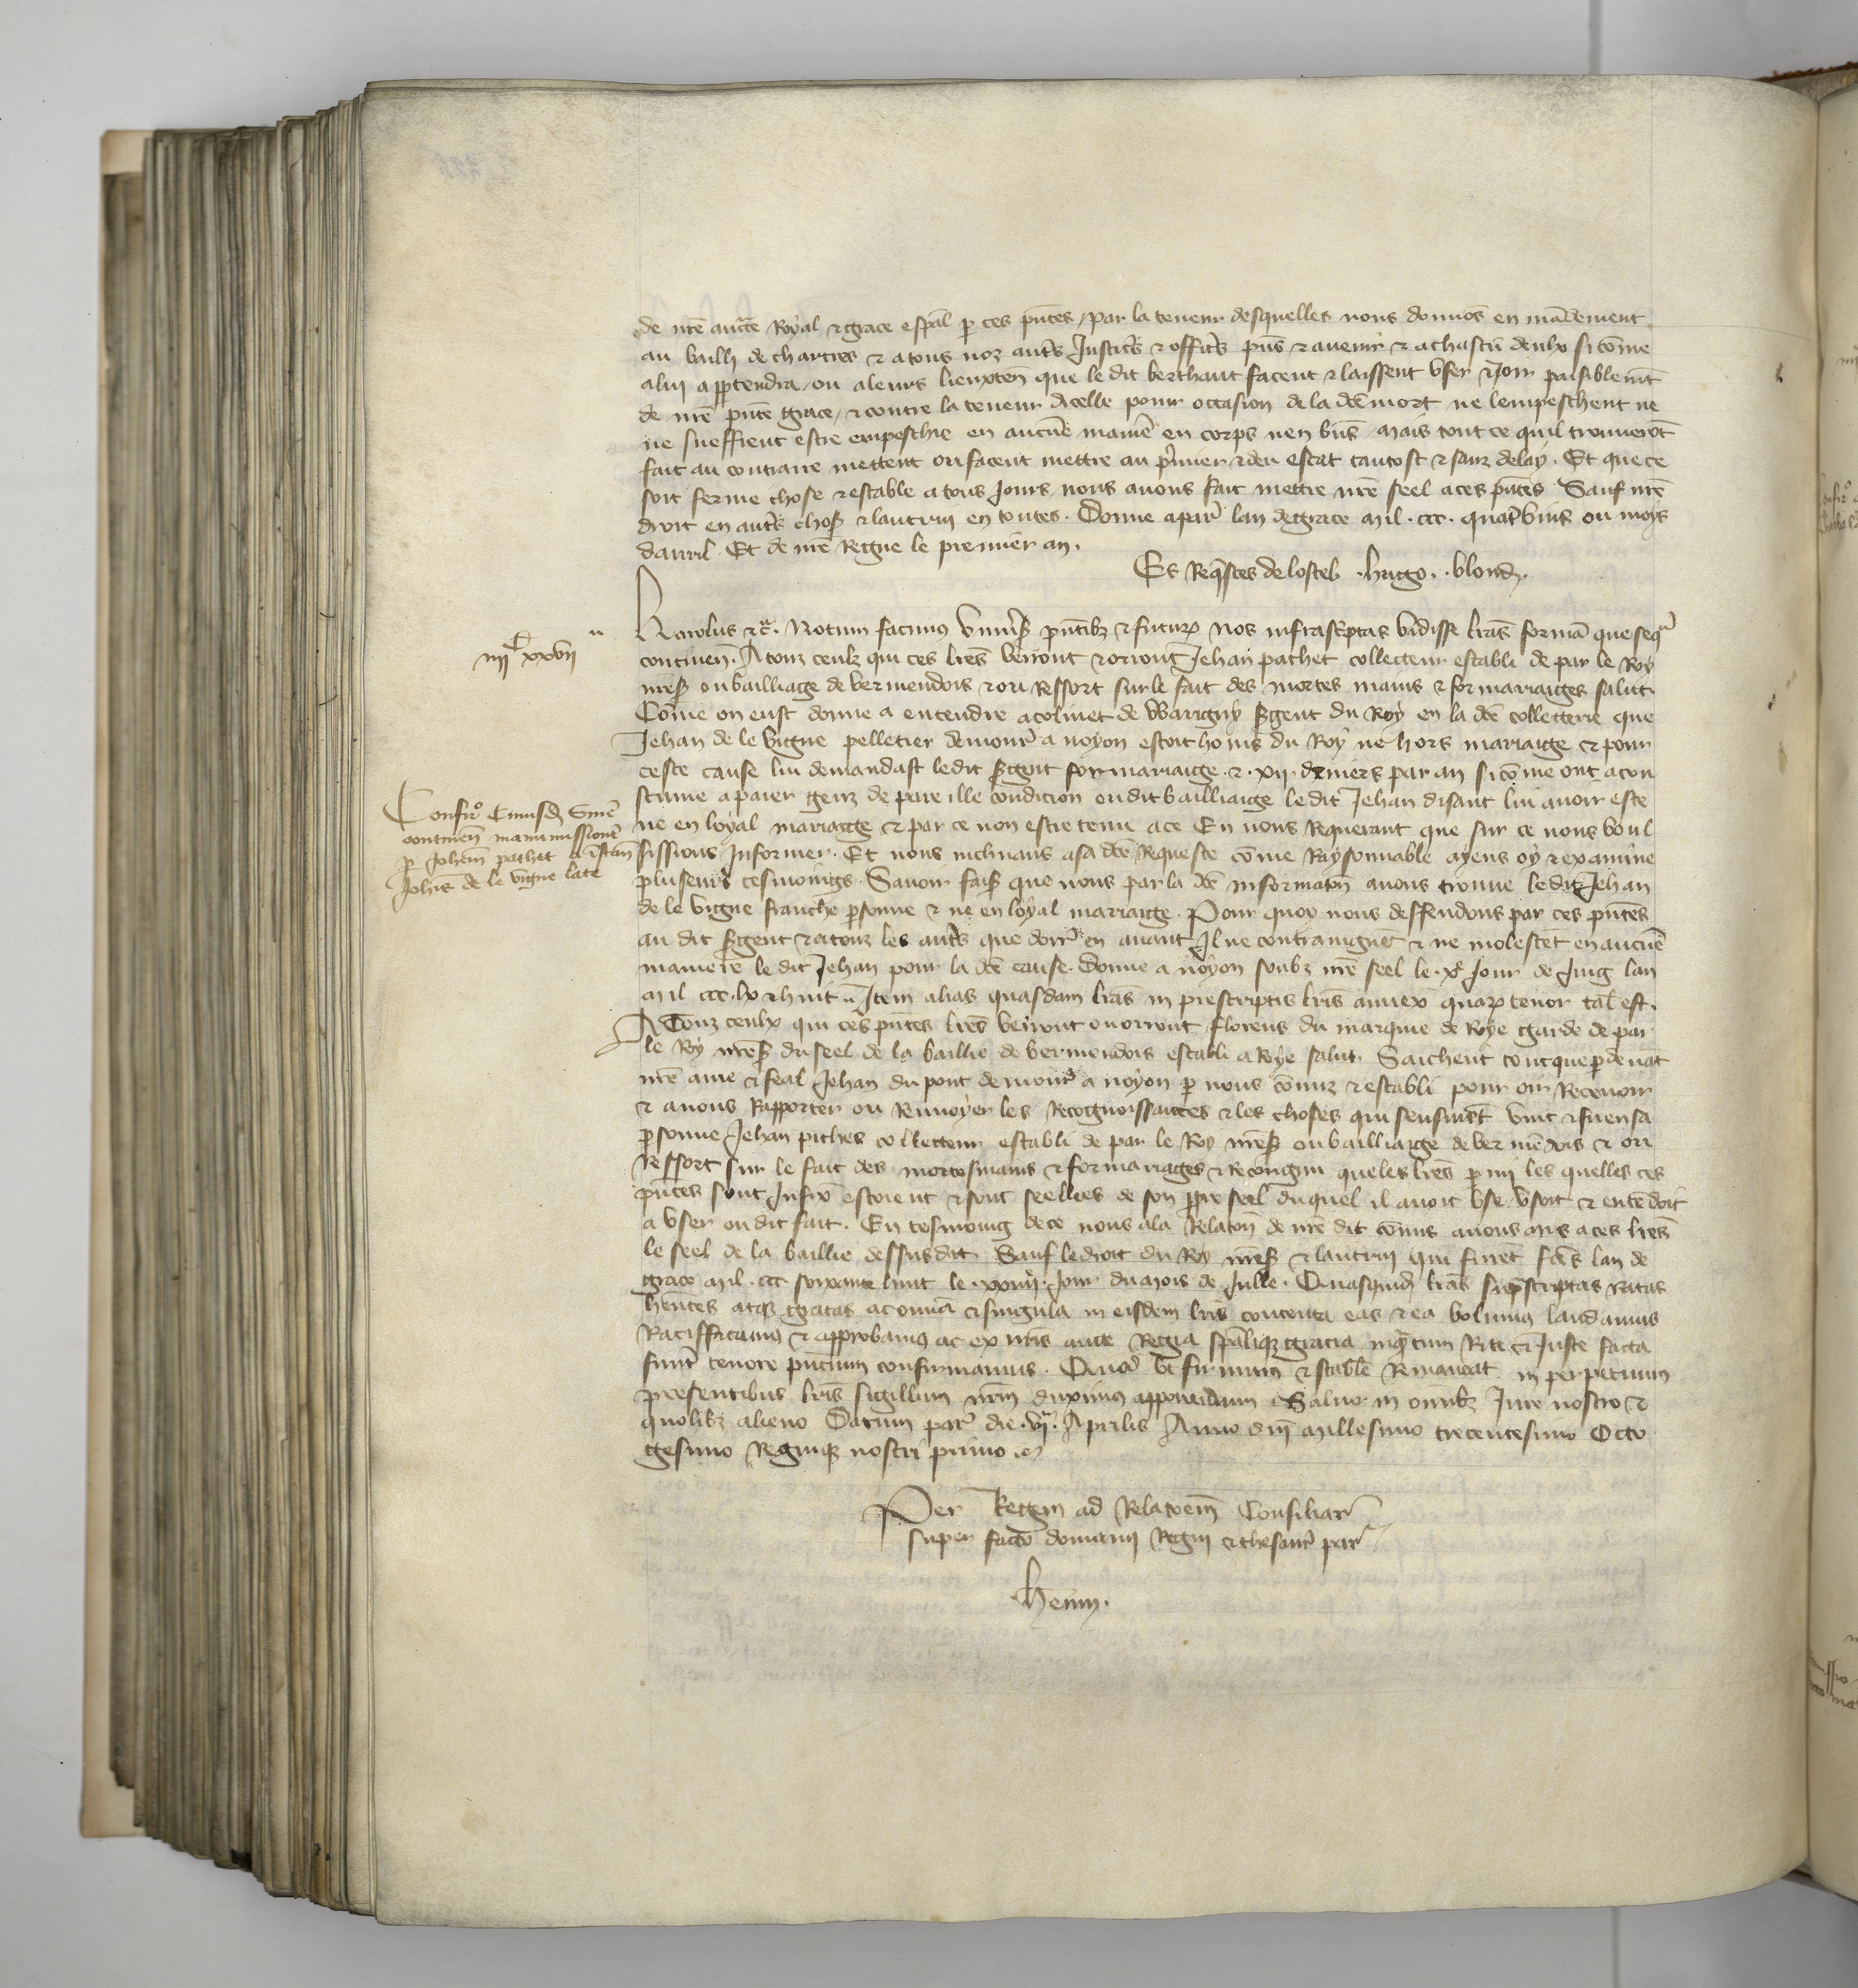 de nrē auctē Royal & grace espāl p ces pntes / par la teneur desquelles nous donnōs en mādement
au bailli de chartres & a tous noz autrs Justicrs & officrs pns & avenir & a chascū deulx si cōme
a lui appartendra / ou a leurs lieuxten que le dit berthaut facent & laissent user & joir paisiblemt
de nrē pnte grace / & contre la teneur dicelle pour occasion de la dcē mort ne lempeschent ne
ne sueffrent estre empeschie en aucūe manie en corps nen bns / Mais tout ce quil trouverōt
fait au contraire mettent ou facent mettre au pmier & deu estat tantost & sanz delay . Et que ce
soit ferme chose & estable a tous jours / nous avons fait mettre nrē seel a ces pntes Sauf nrē
droit en autrs choses & lautrui en toutes . Donne a par lan de grace Mil . ccc . quatvins ou moys
davril . Et de nrē Regne le premier an .
Es Reqstes de lostel . hugo . blond .
Karolus &c . Notum facimus Univsis pntibz & futurꝫ Nos infrascptas vidisse lras formā que seqr
continen . A touz ceulz qui ces lres verront & orront Jehan pathet collecteur establi de par le Roy
nres ou bailliage de vermendois & ou Ressort sur le fait des mortes mains & formariaiges salut
Cōme on eust donne a entendre a colinet de Warigny sgent du Roy en la dcē collecterie que
Jehan de le vigne pelletier demour a noyon estoit homs du Roy ne hors mariaige & pour
ceste cause lui demandast le dit sgent formariaige . & . xii . deniers par an si cōme ont acou
stume a paier genz de pareille condicion ou dit bailliaige le dit Jehan disant lui avoir este
ne en loyal mariaige & par ce non estre tenu a ce En nous Requerant que sur ce nous voul
sissions Informer . Et nous inclinans a sa dcē Requeste cōme Raysonnable ayens oy & examine
pluseurs tesmoings . Savoir fais que nous par la dcē informaton avons trouve le dit Jehan
de le vigne franche psonne & ne en loyal mariaige . Pour quoy nous deffendons par ces pntes
au dit sgent & a touz les autrs que dorr en avant Il ne contraingnēt & ne molestēt en aucūe
maniere le dit Jehan pour la dcē cause . Donne a noyon soubz nrē seel le . xe jour de Juing lan
Mil ccc . lx & huit . Item alias quasdam lras in prescriptis lris annex quarꝫ tenor tal est .
A Touz ceulx qui ces pntes lres verront ou orront / florens du marquie de Roye garde de par
le Roy nres du seel de la baillie de vermendois establi a Roye salut . Saichent tout que pdevāt
nrē ame & feal Jehan du pont demour a noyon p nous cōmis & establi pour oir Recevoir
& a nous Rapporter ou Renvoyer les Recognoissances & les choses qui sensuivēt vint & fu en sa
psonne Jehan pathes collecteur establi de par le Roy nres ou bailliaige de vermēdois & ou
Ressort sur le fait des mortesmains & formariages & Recongnu que les lres pmi les quelles ces
pntes sont Infix estoient & sont seellees de son ppre seel duquel il avoit use usoit & entēdoit
a user ou dit fait . En tesmoing de ce nous a la Relaton de nrē dit cōmis avons mis a ces lres
le seel de la baillie dessusdit Sauf le droit du Roy nres & lautrui qui furēt fcēs lan de
grace mil . ccc soixante huit le . xxiiii . jour du Mois de Julle . Quasquid lras suprascriptas Ratas
hentes atqz gratas ac omia & singula in eisdem lris contenta eas & ea volumus laudamus
Ratifficamus & approbamus ac ex nris aucte Regia spaliqz gracia inqtum Rite & Juste facta
sunt tenore pntium confirmamus . Quod ut firmum & stabile Remaneat in perpetuum
presentibus lris sigillum nrm duximus apponendum Salvo in omibz Jure nostro &
quolibz alieno Datum par die . vi . Aprilis Anno dni millesimo trecentesimo Octo
gesimo Regniqz nostri primo .
Per Regem ad Relatoem Consiliar
super facto domanii Regni & thesaur par
henin .
iiiic xxvii
Confir Cuiusd Snie
continen manumissione
p Johem pathet ad istam
Johis de le vigne late